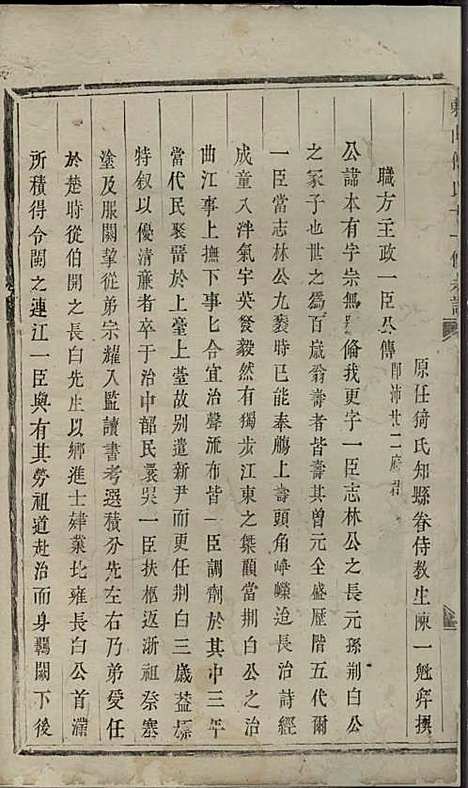 原任猗氏知縣眷侍教生陳一魁拜撰
職方主政一臣公傳 即沛廿二府君
公諱本有字崇無倫我更字一臣志林公之長元孫荆白公
之冢子也世之為百歲翁壽者皆壽其曾元全盛歷階五代爾
一臣當志林公九袠時已能奉觴上壽頭角崢嶸迨長治詩經
成童入泮氣宇英發毅然有獨步江東之槩顧當荆白公之治
曲江事上撫下事匕合宜治聲流布皆一臣調劑於其中三年
當代民聚啓於上堂上臺故别遣新尹而更任荆白三歲益
特叙以優清亷者卒于治中韶民裹吳一臣扶柩返浙祖祭塞
塗及服闋挈從弟宗耀入監讀書考選積分先左右乃弟爰任
於楚時從伯開之長白先生以鄉進士肄業北雍長白公首灤
所積得令閩之連江一臣與有其勞祖道赴治而身羈闕下後